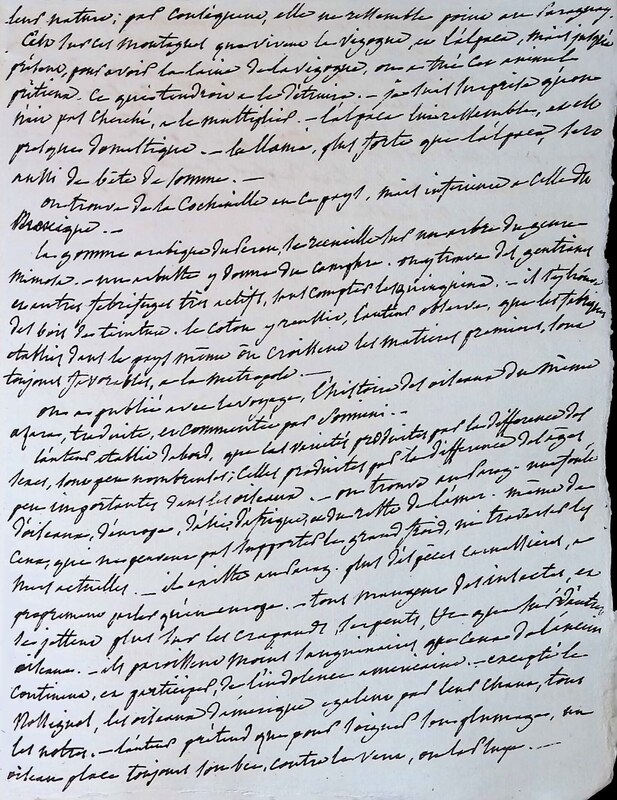 leur nature; par conséquent, elle ne ressemble point au Paraguay.
C'est sur ces montagnes que vivent la vigogne, et l'alpaca, mais jusqu'à
présent, pour avoir la laine de la vigogne, on a tué cet animal
précieux. Ce qui tendroit à le détruire. — je suis surpris qu'on
n'ait pas cherché, à le multiplier. — l'alpaca lui ressemble, et est
presque domestique. — le llama, plus forte que l'alpaca, sert
aussi de bête de somme. —
on trouve de la Cochenille en ce pays, mais inférieure à celle du
Mexique. —
la gomme arabique du Perou, se recueille sur un arbre du genre
mimosa. — un arbuste y donne du camphre. on y trouve des gentianes
et autres febrifuges très actifs, sans compter les quinquina. — il s'y trouve
des bois de teinture. le coton y reussit, l'auteur observe, que les fabriques
établies dans le pays même où croissent les matières premieres, sont
toujours favorables, à la metropole. —
on a publié avec le voyage, l'histoire des oiseaux du même
azara, traduite, et commentée par Sonnini. —
l'auteur établit d'abord, que les varietés produites par la difference des
sexes, sont peu nombreuses; celles produites par la difference des âges
peu importantes dans les oiseaux. — on trouve au Parag. une foule
d'oiseaux, d'europe, d'asie, d'afrique, et du reste de l'amer. même de
ceux, qui ne peuvent pas supporter le grand froid, ni traverser les
mers actuelles. — il existe au Parag. plus d'espèces carnassieres, à
proprement parler qu'en europe. — tous mangent des insectes, et
se jettent plus sur les crapauds, serpents, &c que sur d'autres
oiseaux. — ils paroissent moins sanguinaires, que ceux de l'ancien
continent, et participer, de l'indolence americaine. — excepté le
Rossignol, les oiseaux d'amerique egalent par leur chant, tous
les notres. — l'auteur prétend que pour soigner son plumage, un
oiseau place toujours son bec, contre le vent, ou la pluye. —